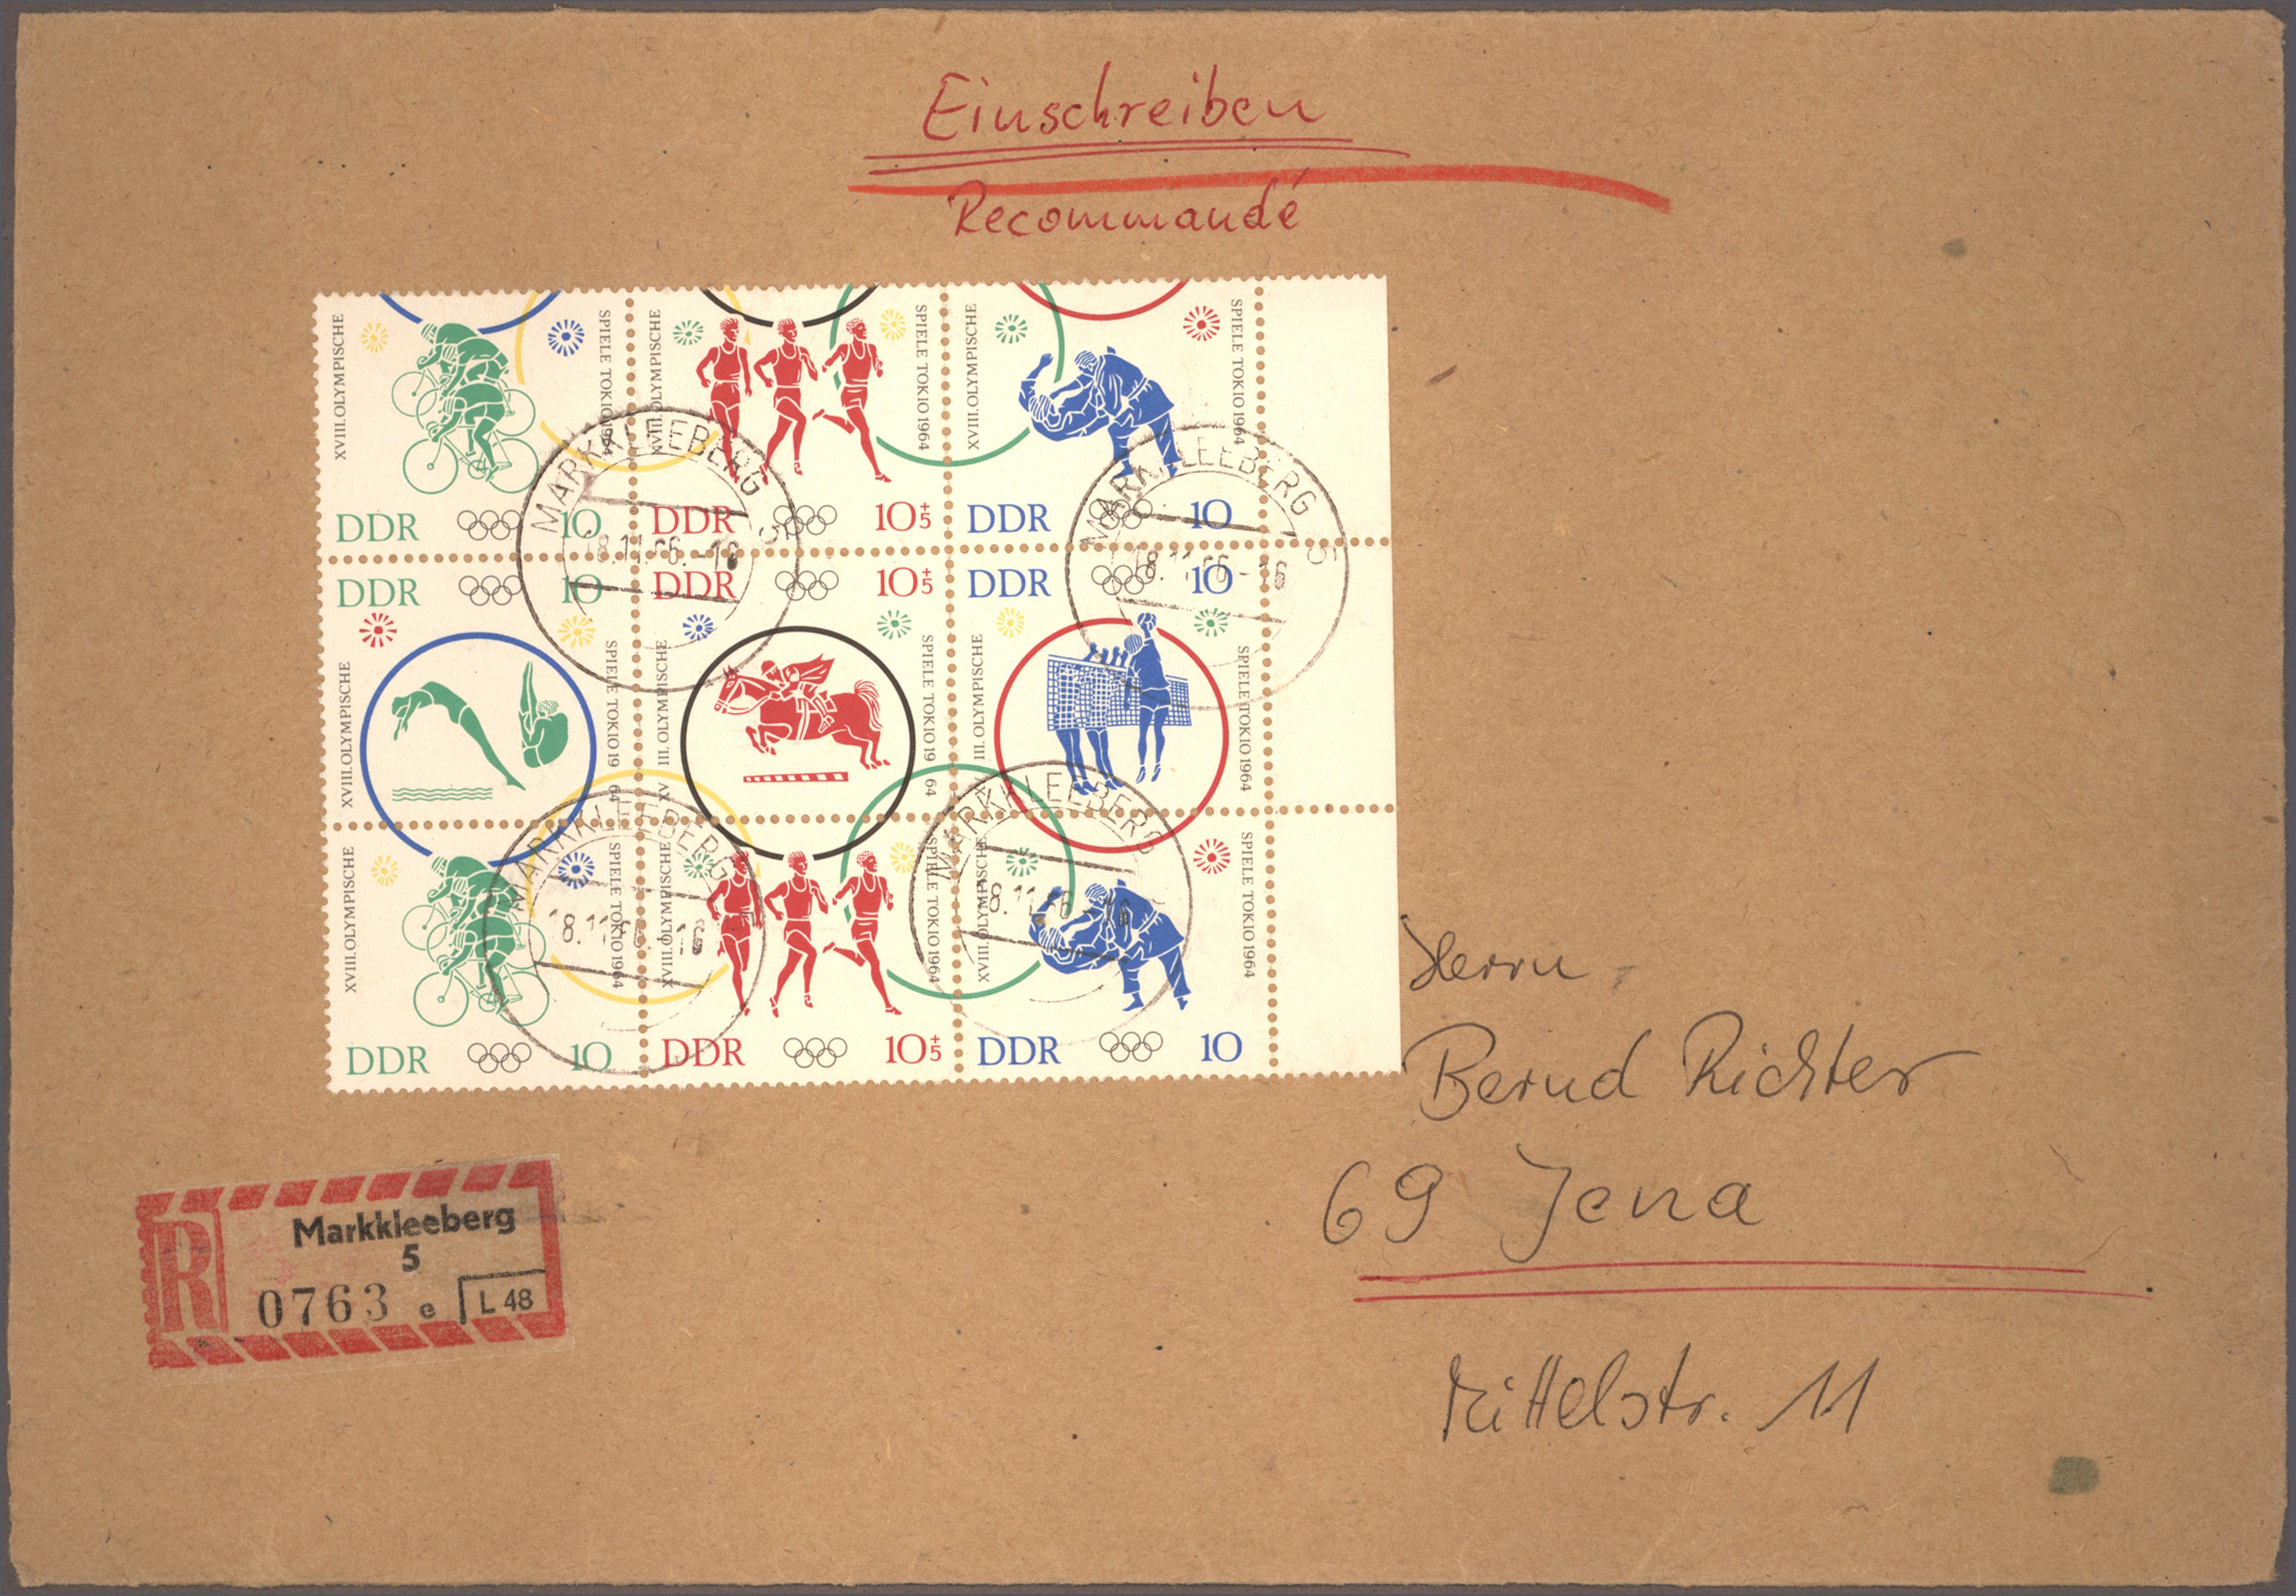 Einschreiben
Recommandé
XVIII. OLYMPISCHE
SPIELE TOKIO 1964
XVIII. OLYMPISCHE
SPIELE TOKIO 1964
XVIII. OLYMPISCHE
SPIELE TOKIO 1964
DDR 10
DDR 10+5
DDR 10
MARKKLEEBERG 5
18.11.66.-16
MARKKLEEBERG 5
18.11.66-16
DDR 10
DDR 10+5
DDR 10
XVIII. OLYMPISCHE
SPIELE TOKIO 1964
XVIII. OLYMPISCHE
SPIELE TOKIO 1964
III. OLYMPISCHE
SPIELE TOKIO 1964
MARKKLEEBERG
18.11.66 16
MARKKLEEBERG
18.11.66 16
XVIII. OLYMPISCHE
SPIELE TOKIO 1964
XVIII. OLYMPISCHE
SPIELE TOKIO 1964
XVIII. OLYMPISCHE
SPIELE TOKIO 1964
DDR 10
DDR 10+5
DDR 10
Herrn
Bernd Richter
69 Jena
Mittelstr. 11
R
Markkleeberg
5
0763 e L 48